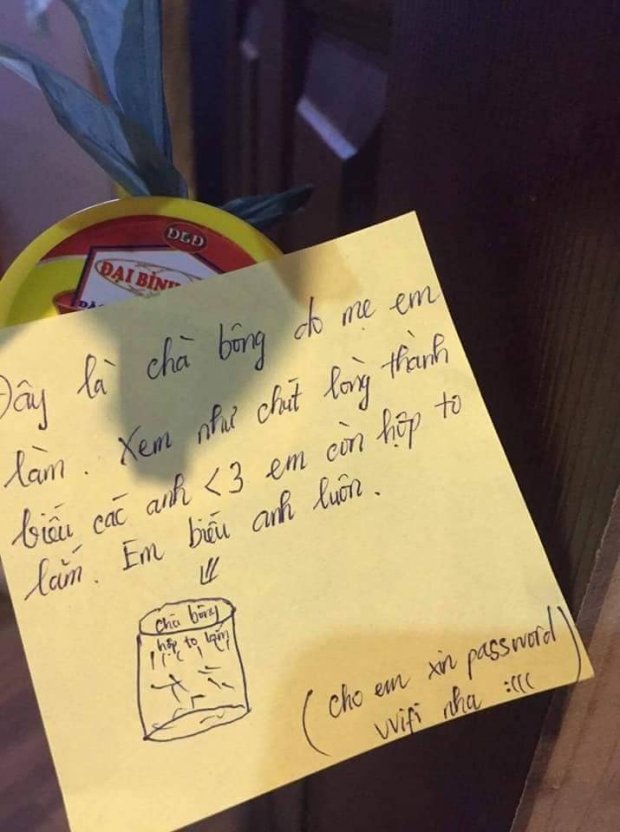 DGD
ĐẠI BÌN
Đây là chà bông do mẹ em
làm. Xem như chút lòng thành
biếu các anh <3 em còn hộp to
lắm. Em biếu anh luôn.
chà bông
hộp to lắm
(cho em xin password
wifi nha :((( )